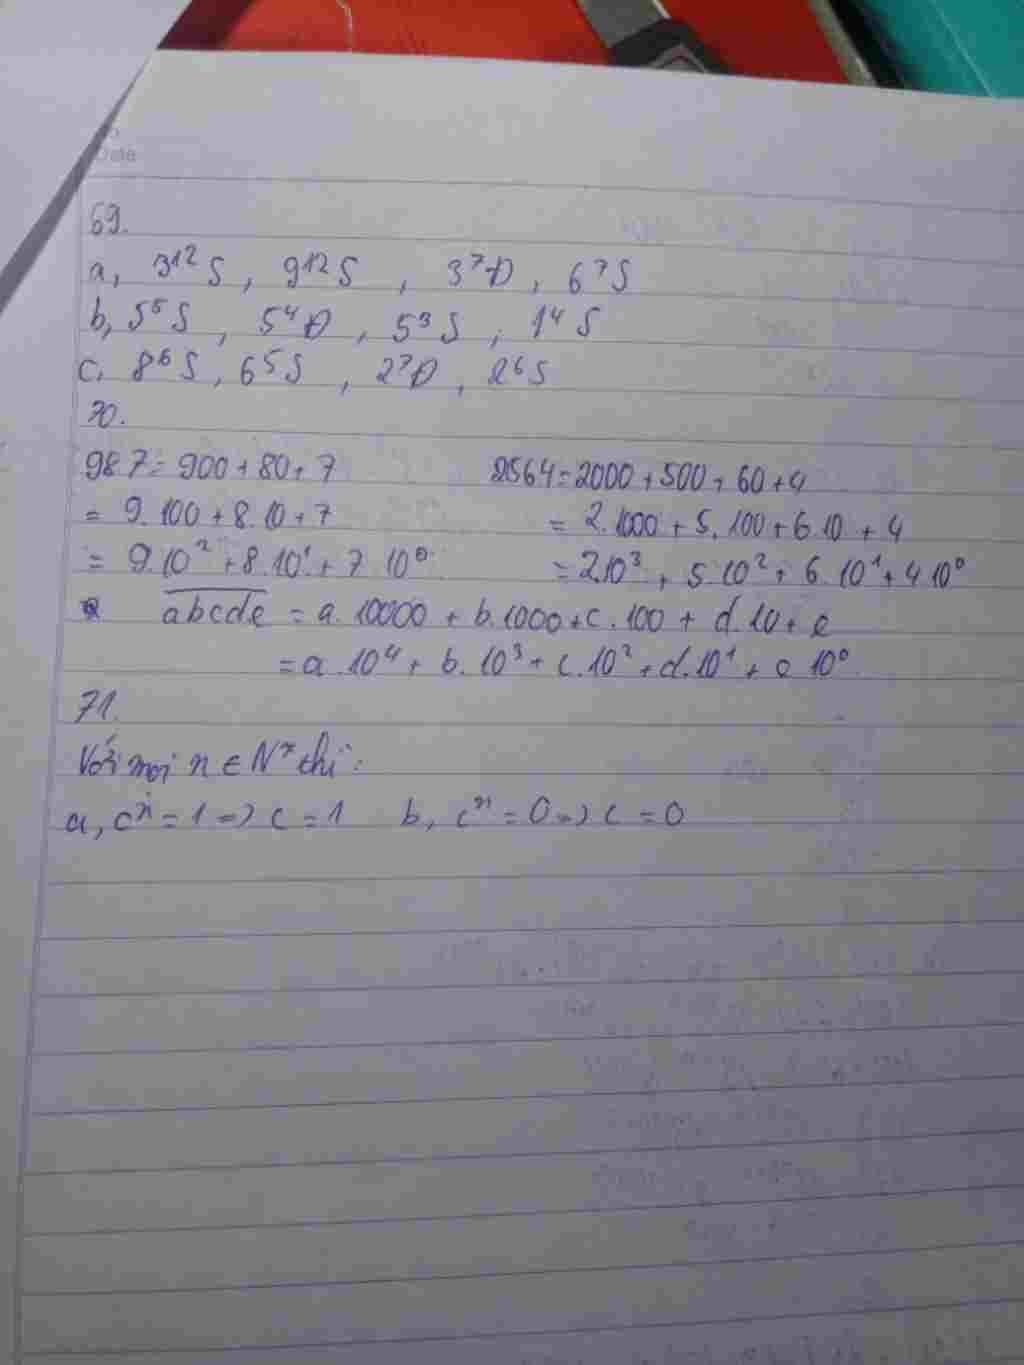 Date
69.
a, 3¹² S, 9¹² S, 3⁷ Đ, 6⁷ S
b, 5⁵ S, 5⁴ Đ, 5³ S, 1⁴ S
c, 8⁶ S, 6⁵ S, 2⁷ Đ, 2⁶ S
70.
987 = 900 + 80 + 7
= 9.100 + 8.10 + 7
= 9.10² + 8.10¹ + 7.10⁰
2564 = 2000 + 500 + 60 + 4
= 2.1000 + 5.100 + 6.10 + 4
= 2.10³ + 5.10² + 6.10¹ + 4.10⁰
abcde = a.10000 + b.1000 + c.100 + d.10 + e
= a.10⁴ + b.10³ + c.10² + d.10¹ + e.10⁰
71.
Với mọi n ∈ N* thì:
a, cⁿ = 1 => c = 1 b, cⁿ = 0 => c = 0